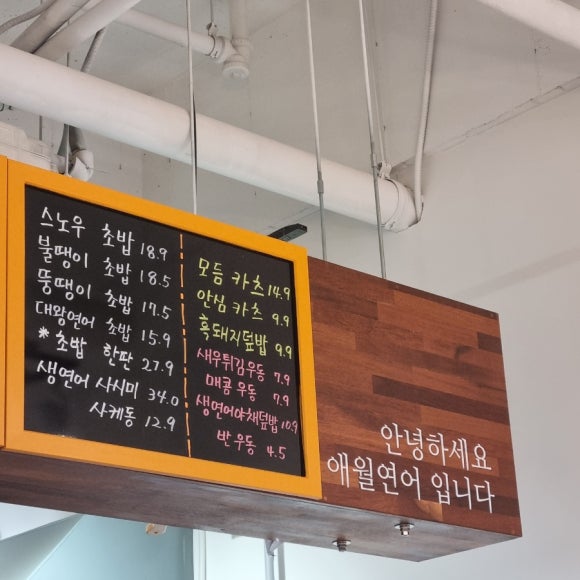 스노우 초밥 18.9
불땡이 초밥 18.5
뚱땡이 초밥 17.5
대왕연어 초밥 15.9
*초밥 한판 27.9
생연어 사시미 34.0
사케동 12.9
모듬 카츠 14.9
안심 카츠 9.9
흑돼지덮밥 9.9
새우튀김우동 7.9
매콤우동 7.9
생연어야채덮밥 10.9
반우동 4.5
안녕하세요
애월연어 입니다